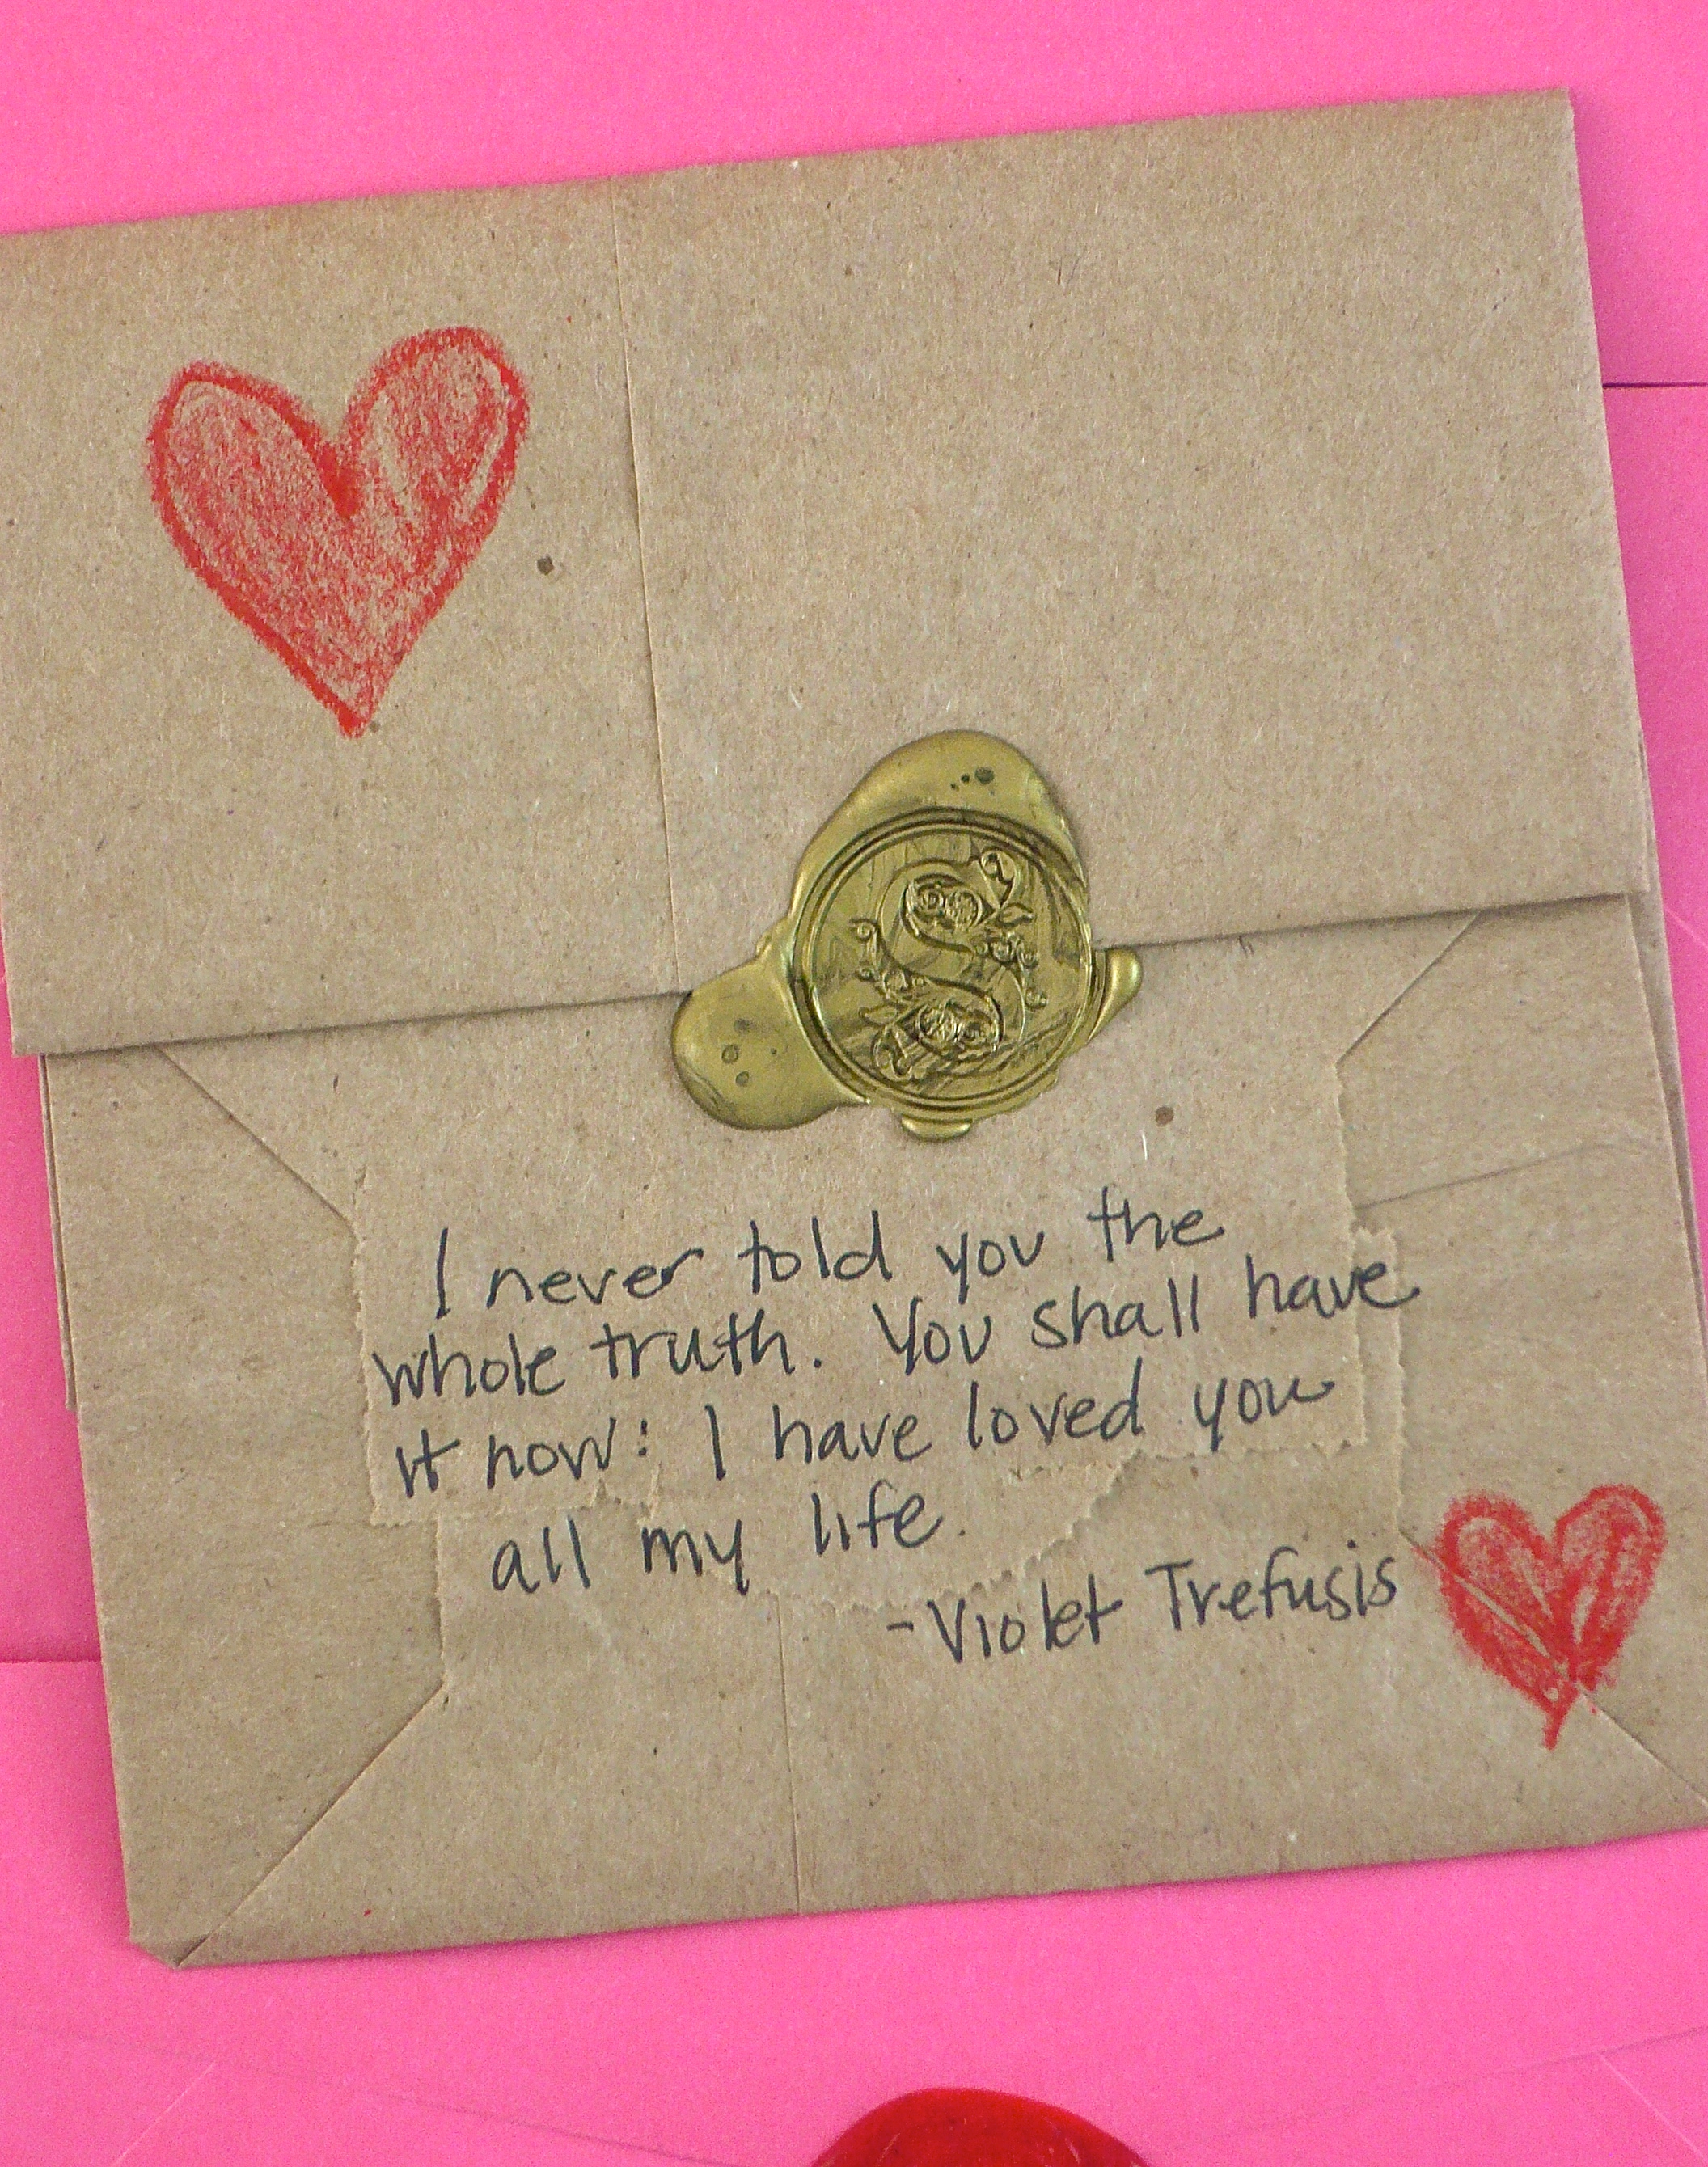 S
I never told you the
whole truth. You shall have
it now: I have loved you
all my life.
-Violet Trefusis